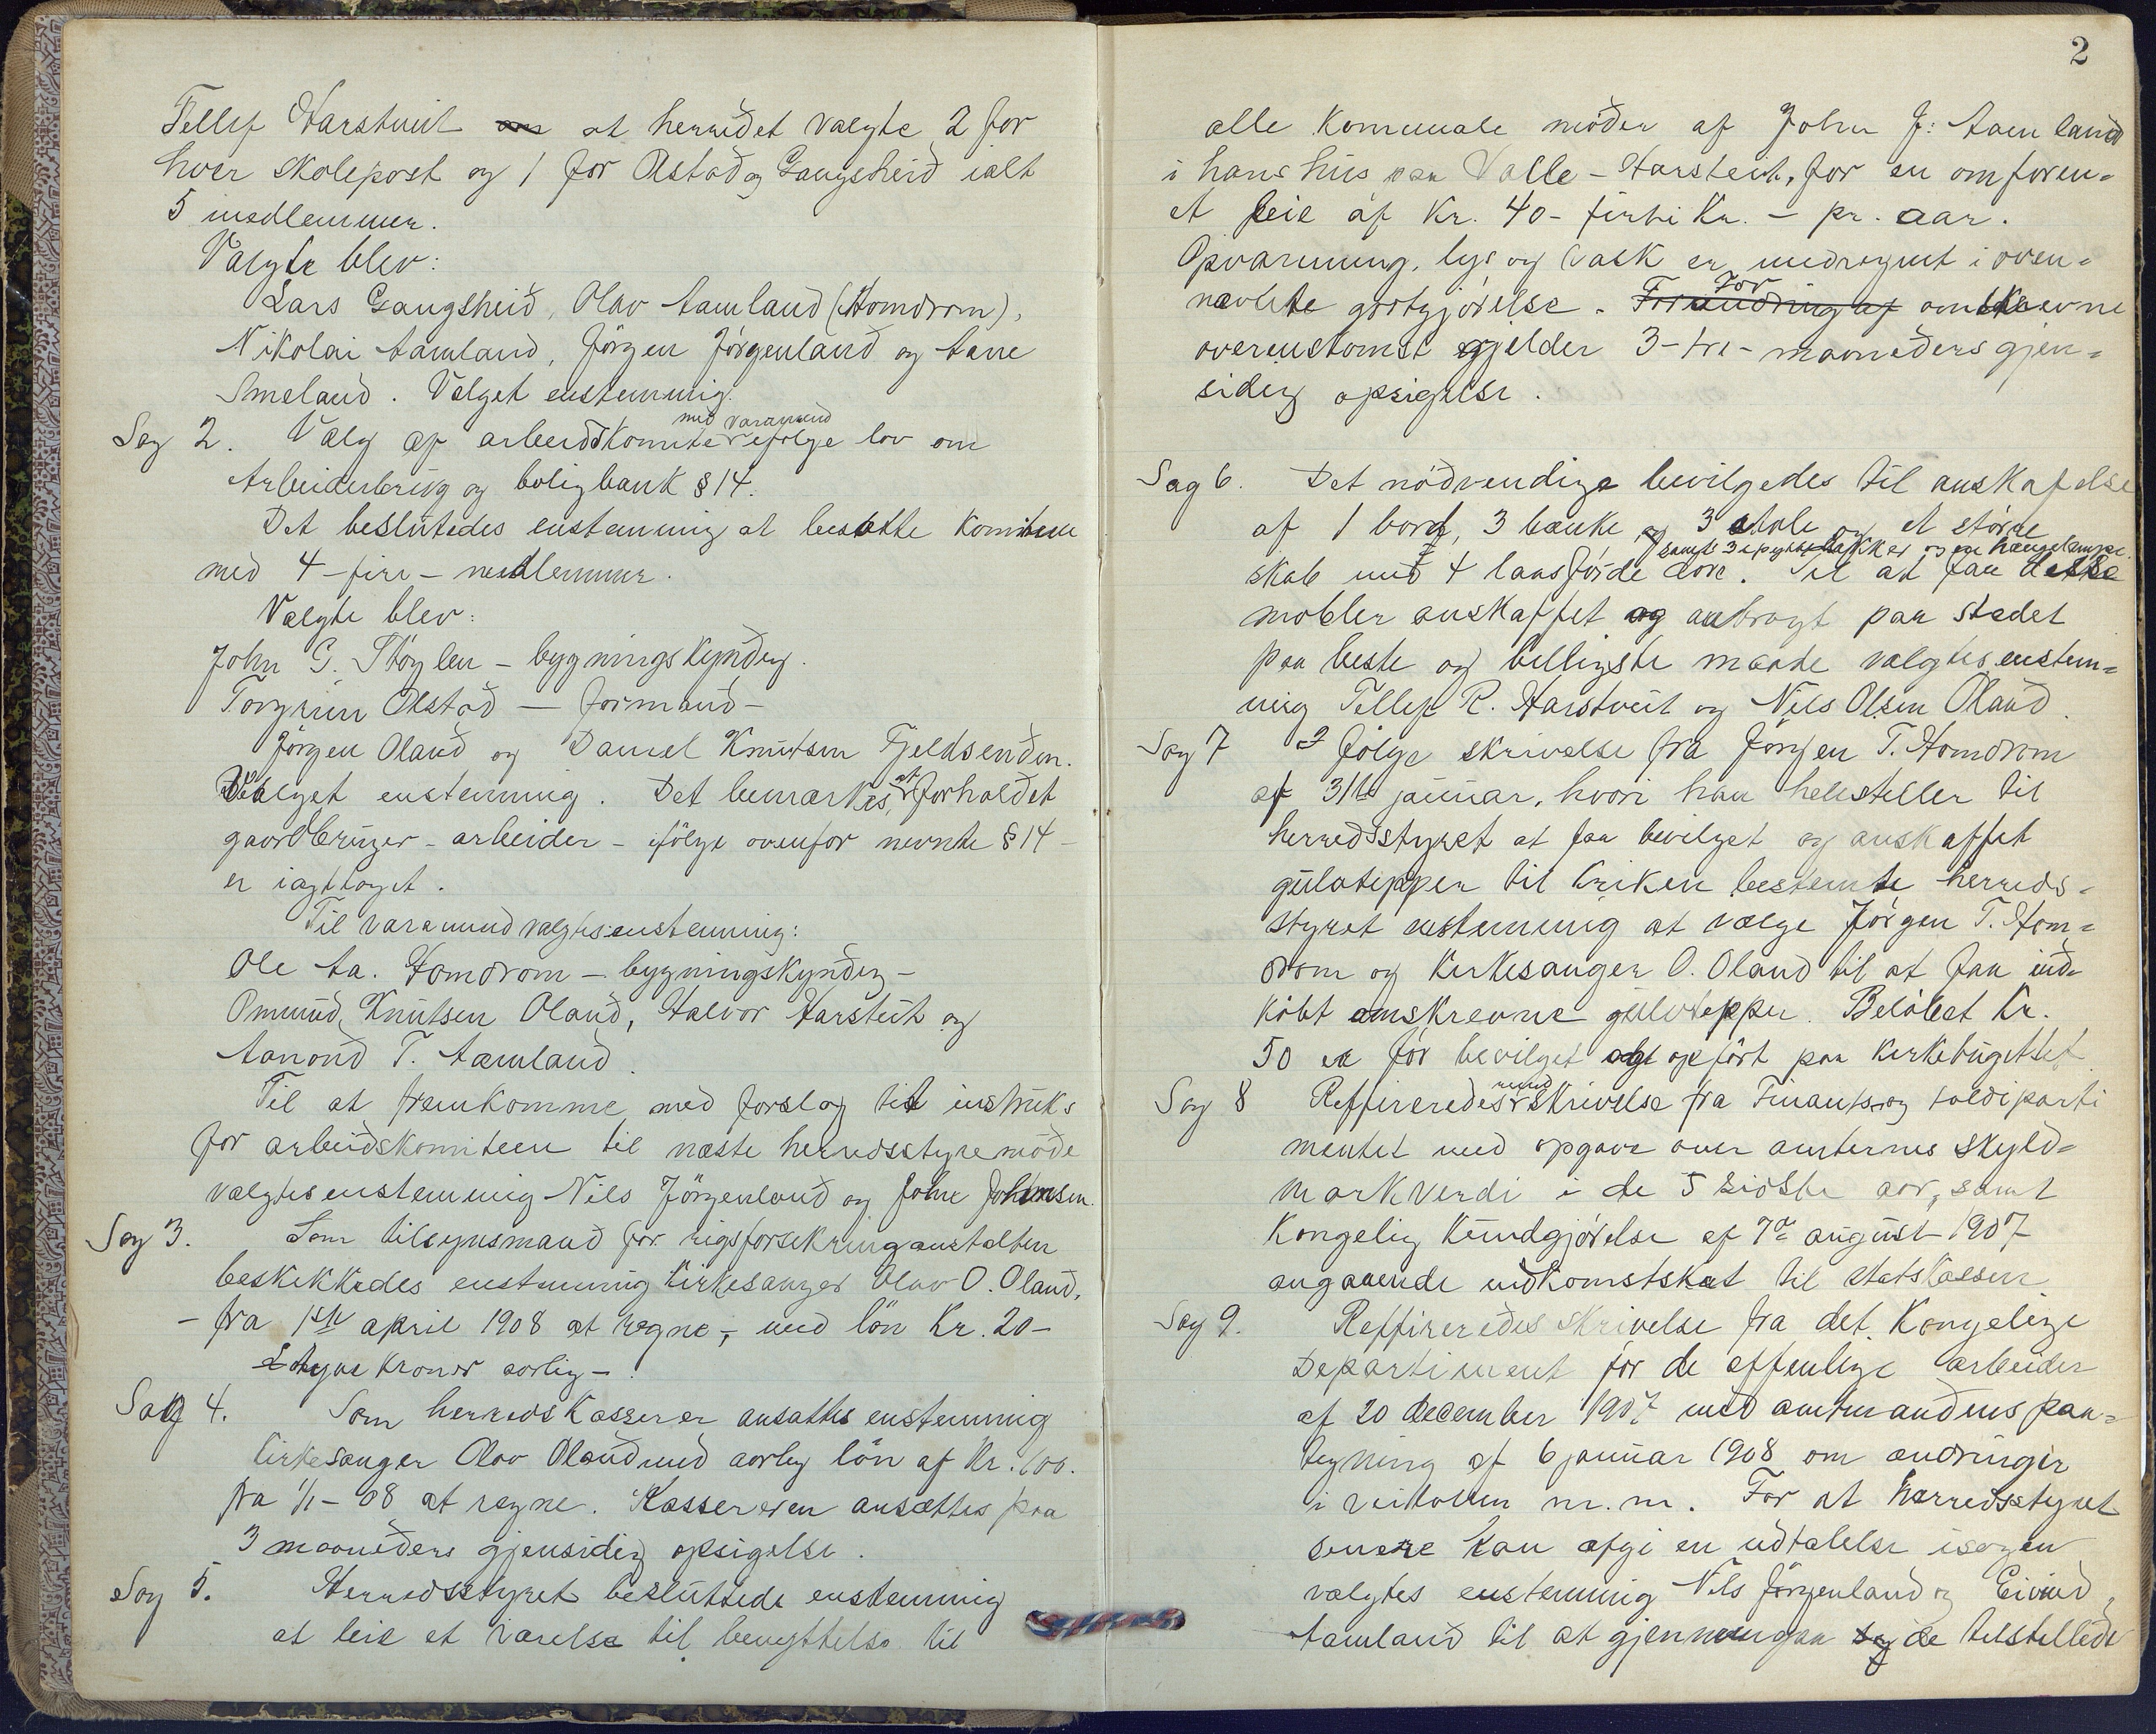 Tellef Harstveit om at herredet valgte 2 for
hver skolepost og 1 for Aastad og Gangsheid ialt
5 medlemmer.
Valgte blev:
Lars Gangsheid, Olav Aamland (Homdrom),
Nikolai Aamland, Jörgen Jörgenland og Aane
Smeland. Valget enstemmig.
Sag 2. Valg af arbeidskomite med varamænd ifølge lov om
Arbeiderbrug og boligbank § 14.
Det beslutedes enstemmig at besætte komiteen
med 4 - fire - medlemmer.
Valgte blev:
John G. Støylen - bygningskyndig.
Torgrim Olstad — formand -
Jörgen Oland og Daniel Knutsen Fjeldsenden.
Valget enstemmig. Det bemærkes, at forholdet
gaardbruger - arbeider - ifölge ovenfor nevnte § 14 -
er iagttaget.
Til varamænd valgtes enstemmig:
Ole Aa. Homdrom - bygningskyndig -
Ommund Knutsen Oland, Halvor Harsteit og
Aanond T. Aamland.
Til at fremkomme med forslag til instruks
for arbeidskomiteen til næste herredsstyremøde
valgtes enstemmig Nils Jörgenland og John Johnsen.
Sag 3. Som tilsynsmand for rigsforsekringanstalten
beskikkedes enstemmig kirkesanger Olav O. Oland,
- fra 1ste april 1908 at regne, - med lön Kr. 20 -
tyve kroner aarlig -
Sag 4. Som herredskasserer ansattes enstemmig
kirkesanger Olav Oland med aarlig lön af Kr. 100.
fra 1/1 - 08 at regne. Kassereren ansættes paa
3 maaneders gjensidig opsigelse.
Sag 5. Herredsstyret besluttede enstemmig
at leie et værelse til benyttelse til
2
alle kommunale møder af John J: Aamland
i hans hus paa Valle - Harsteit, for en omforen=
et leie af Kr. 40 - firti Kr. - pr. aar.
Opvarmning, lys og vask er medregnet i oven=
nævnte godtgjörelse. Forandring af For omskrevne
overenskomst gjelder 3 - tre - maaneders gjen=
sidig opsigelse.
Sag 6. Det nödvendige bevilgedes til anskafelse
af 1 bord, 3 bænke og 3 stole og et större
skab med 4 laasförde döre. samt 3 spyttebakker og en hængelampe. Til at faa disse
möbler anskaffet og anbragt paa stedet
paa beste og billigste maade valgtes enstem=
mig Tellef R. Harstveit og Nils Olsen Oland.
Sag 7 I følge skrivelse fra Jörgen T. Homdrom
af 31te januar, hvori han henstiller til
herredsstyret at faa bevilget og anskaffet
gulvtepper til kirken bestemte herreds=
styret enstemmig at vælge Jörgen T. Hom=
drom og kirkesanger O. Oland til at faa ind=
köbt omskrevne gulvtepper. Belöbet Kr.
50 er för bevilget og opfört paa kirkebugettet.
Sag 8 Reffereredes rund skrivelse fra Finants og tolddeparte
mentet med opgave over amternes skyld=
markverdi i de 5 sidste aar, samt
Kongelig Kundgjörelse af 7de august 1907
angaaende indkomstskat til statskassen
Sag 9. Reffereredes skrivelse fra det Kongelige
Departement for de offenlige arbeider
af 20 december 1907 med amtmandens paa=
tegning af 6 januar 1908 om ændringer
i veiloven m.m. For at herredsstyret
senere kan afgi en udtalelse i sagen
valgtes enstemmig Nils Jörgenland og Eivind
Aamland til at gjennemgaa de tilstillede